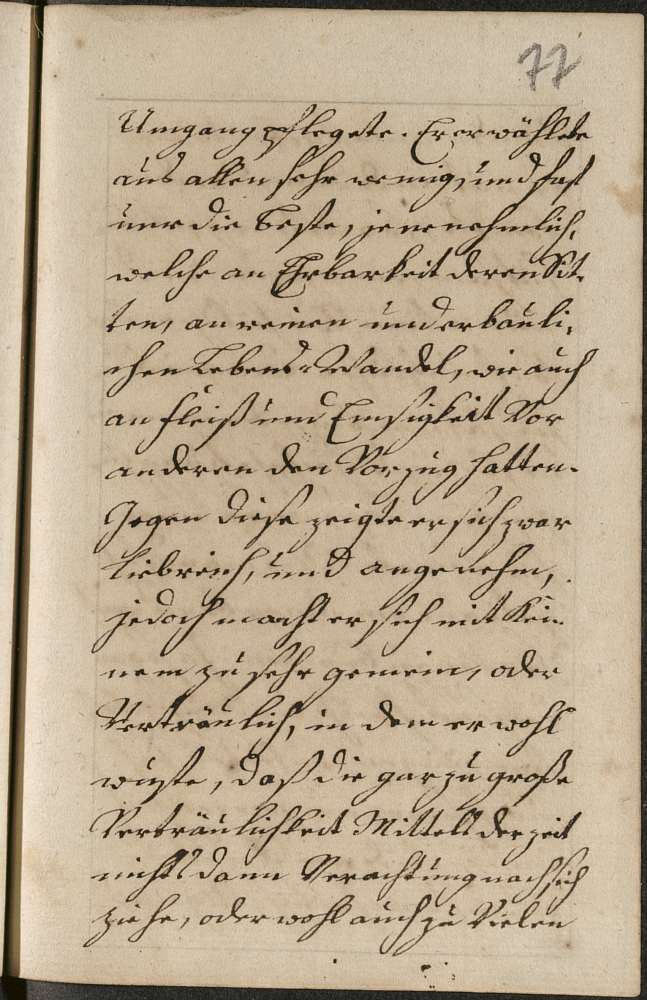 77
Umgang pflegete. Er erwählete
aus allen sehr wenig, und fast
nur die beste, jene nehmlich,
welche an Ehrbarkeit deren Sit-
ten, an reinen und erbauli-
chen Lebens-Wandel, wie auch
an fleiß und Emsigkeit Vor
anderen den Vorzug hatten.
Gegen diese zeigte er sich zwar
liebreich, und angenehm,
jedoch macht er sich mit Kei-
nem zu sehr gemein, oder
Verträulich, in dem er wohl
wuste, daß die gar zu große
Verträulichkeit Mittelst der zeit
nichts dann Verachtung nach sich
ziehe, oder wohl auch zu Vielen